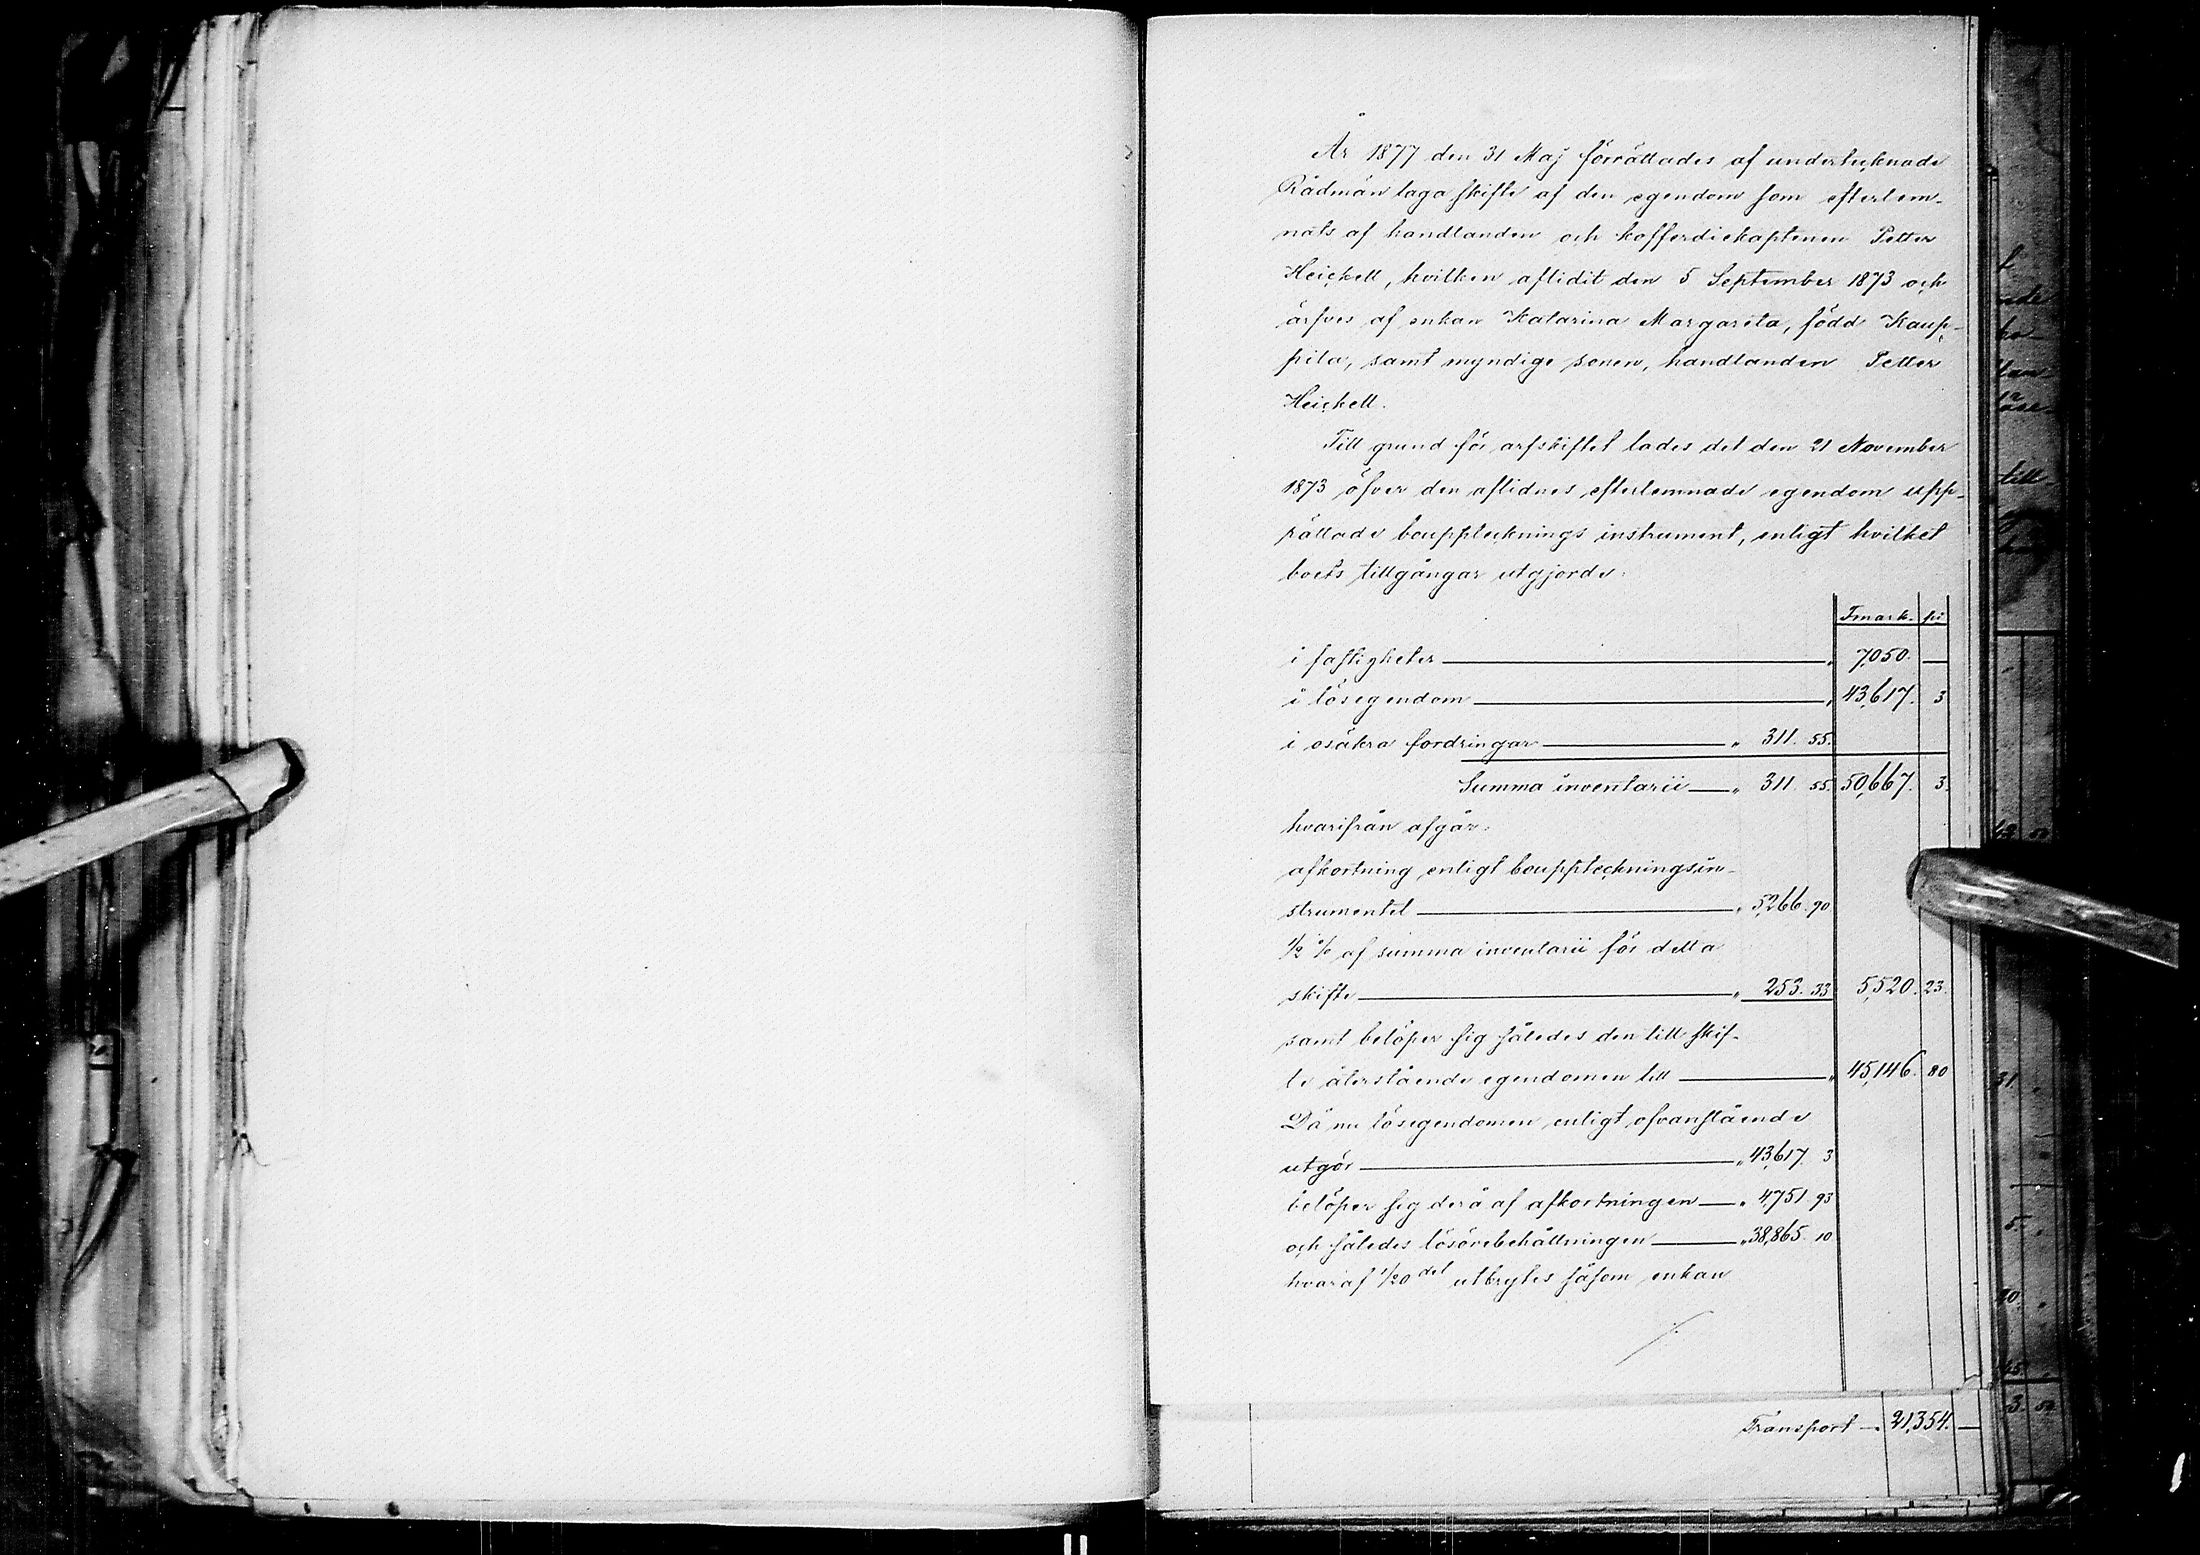 År 1877 den 31 Maj förrättades af undertecknade
Rådmän laga skifte af den egendom som efterlem-
nats af handlanden och kofferdiekaptenen Petter
Heickell, hvilken aflidit den 5 September 1873 och
ärfves af enkan Katarina Margareta, född Kaup-
pila, samt myndige sonen, handlanden Petter
Heickell.
Till grund för arfskiftet lades det den 21 November
1873 öfver den aflidnes efterlemnade egendom upp-
rättade bouppteknings instrument, enligt hvilket
boets tillgångar utgjorde:
Fmark. pi
i fastigheter — " 7,050. —
i lösegendom — " 43,617. 3
i osäkra fordringar — " 311. 55.
Summa inventarii — " 311. 55. 50,667. 3.
hvarifrån afgår:
afkortning enligt bouppteckningsin-
strumentet — " 5,266. 90
1/2 % af summa inventarii för detta
skifte — " 253. 33 5,520. 23.
samt belöper sig således den till skif-
te återstående egendomen till — " 45,146. 80
Då nu lösegendomen enligt ofvanstående
utgör — " 43,617. 3
belöper sig derå af afkortningen — " 4,751. 93
och således lösörebehållningen — " 38,865. 10
hvaraf 1/20 del utbrytes såsom enkan
./.
Transport — 21,354. —